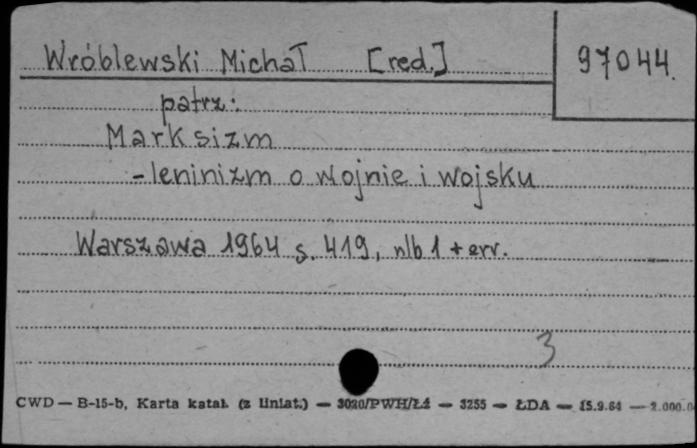 Wróblewski Michał [red.] 97044.
patrz:
Marksizm
-leninizm o wojnie i wojsku
Warszawa 1964 s. 419, nlb 1 + err.
3
CWD — B-15-b, Karta katal. (z liniat.) — 3020/PWH/Ł4 — 3255 — ŁDA — 15.9.64 — 2.000.0